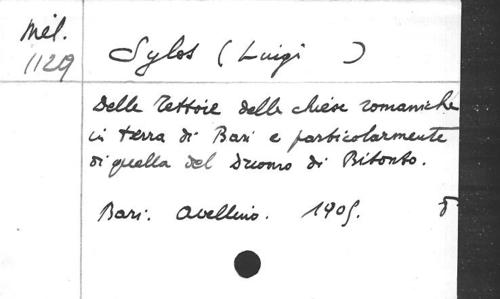 Mél.
1129
Sylos (Luigi )
Delle Tettoie delle chiese romaniche
in terra di Bari e particolarmente
di quella del Duomo di Bitonto.
Bari. Avellino. 1905. 8